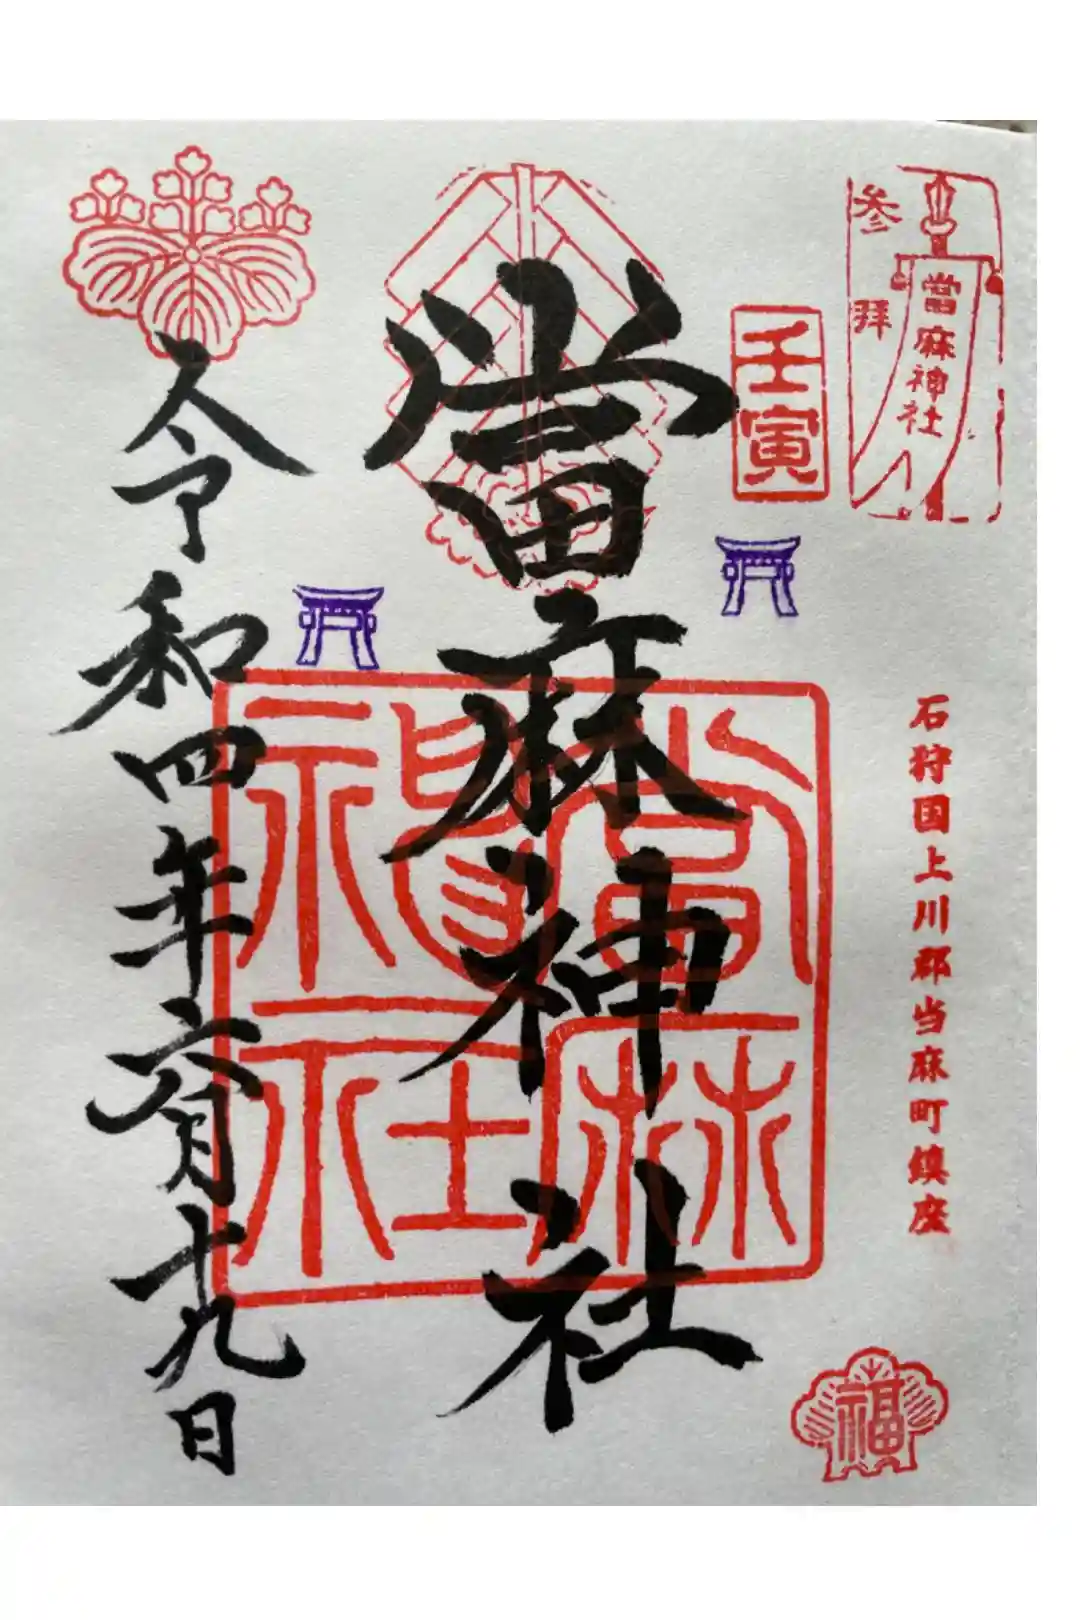 参拝
當麻神社
壬寅
石狩国上川郡当麻町鎮座
福
當麻神社
當麻神社
令和四年六月十九日